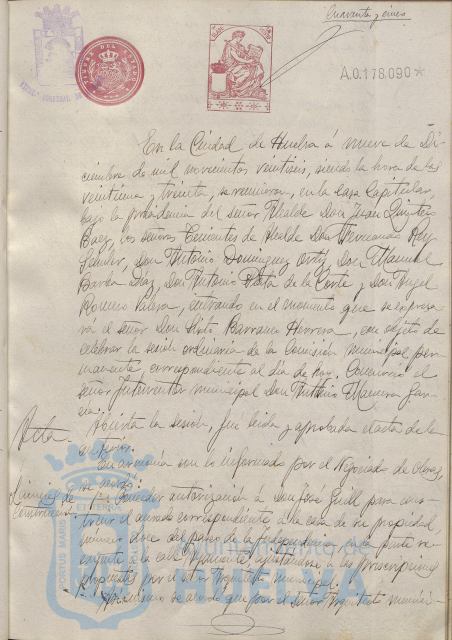 Cuarenta y cinco
A.0.178.090*
En la Ciudad de Huelva á nueve de Di-
ciembre de mil novecientos veintiseis, siendo la hora de las
veintiuna y treinta, se reunieron, en la Casa Capitular
bajo la presidencia del Señor Alcalde Don Juan Quintero
Baez, los señores Tenientes de Alcalde Don Fernando Rey
Don Antonio Dominguez Ortiz, Don Manuel
Barba Díaz, Don Antonio de la Corte y Don Angel
Romero entrando en el momento que se expresa-
rá el señor Don Sixto Barranco Herrera, con objeto de
celebrar la sesión ordinaria de la Comisión municipal per-
manente, correspondiente al día de hoy. Concurrió el
señor Interventor municipal Don Antonio Gar-
cía.
Acta.
Abierta la sesión, fué leida y aprobada el acta de la
anterior.
En armonía con lo informado por el Negociado de Obras,
se acordó:
Licencias de
construcción
Conceder autorización á Don José Guill para cons-
truir el acerado correspondiente á la casa de su propiedad
número doce del paseo de la Independencia, en la parte re-
cayente á la calle ajustandose á las prescripciones
propuestas por el señor Arquitecto municipal.
se acordó que por el señor Arquitecto munici-
Ayuntamiento de
HUELVA
PORTUS MARIS
ET TERRAE